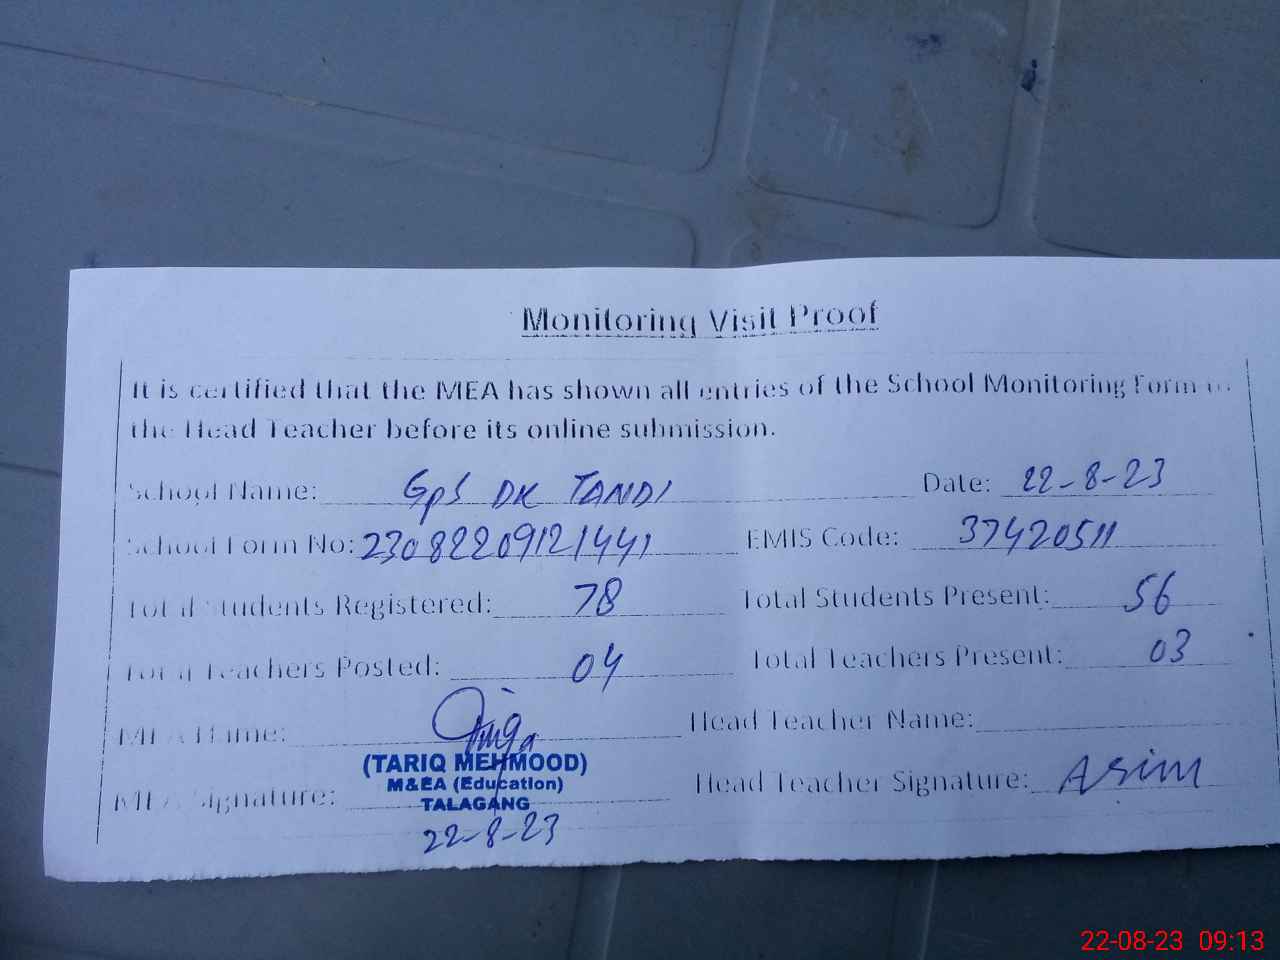 Monitoring Visit Proof
It is certified that the MEA has shown all entries of the School Monitoring Form to
the Head Teacher before its online submission.
School Name: GPS DK TANDI Date: 22-8-23
School Form No: 23082209121441 EMIS Code: 37420511
Total Students Registered: 78 Total Students Present: 56
Total Teachers Posted: 04 Total Teachers Present: 03
MEA Name: Head Teacher Name:
(TARIQ MEHMOOD)
M&EA (Education)
MEA Signature: TALAGANG Head Teacher Signature: Asim
22-8-23
22-08-23 09:13